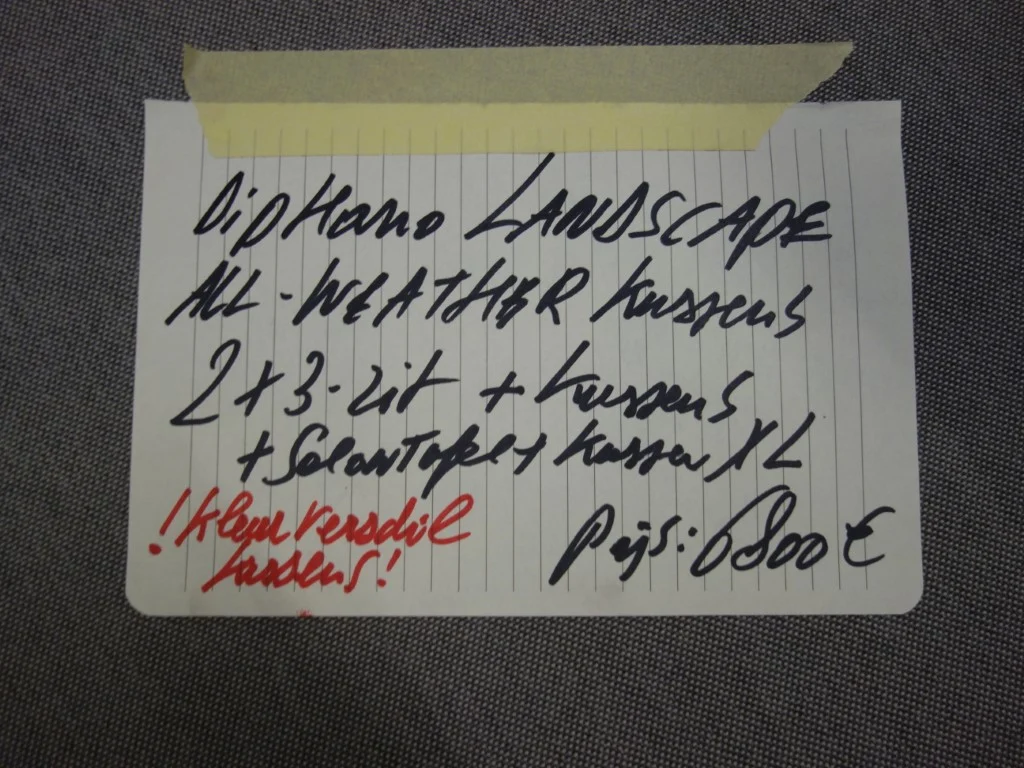 DipHano LANDSCAPE
ALL-WEATHER Kussens
2 x 3-zit + Kussens
+ SalonTafel + Kussen XL
! Kleur Verschil
Kussens!
Prijs: 6800 €